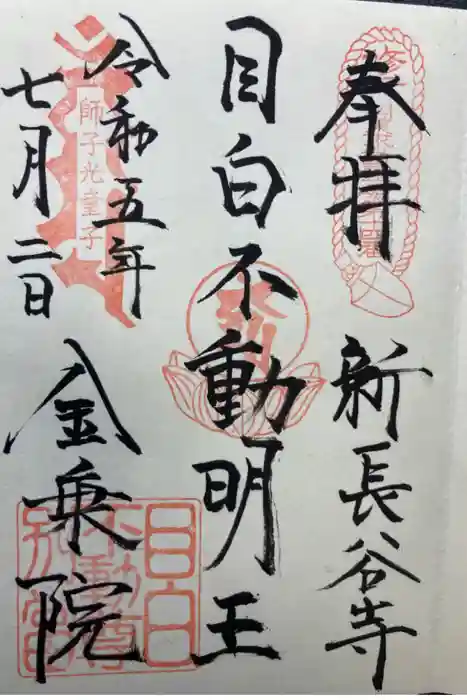 奉拝
新長谷寺
目白不動明王
令和五年
七月二日
金乗院
師子光童子
目白
不動尊